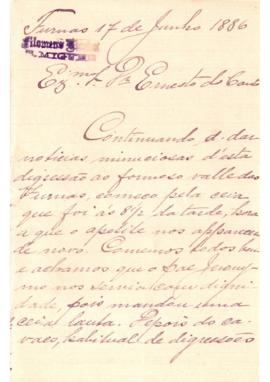 Furnas 17 de Junho 1886
Filomeno
S. MIGUEL
Ex.mo Sr. Dr. Ernesto do Canto
Continuando a dar
noticias minuciosas d'esta
digressão ao formoso valle das
Furnas, começo pela ceia
que foi ás 8 1/2 da tarde, hora
a que o apetite nos appareceu
de novo. Comemos todos bem
e achamos que o Pae Jerony-
mo nos serviu com digni-
dade, pois mandou uma
ceia lauta. Depois do ca-
vaco, habitual de digressões